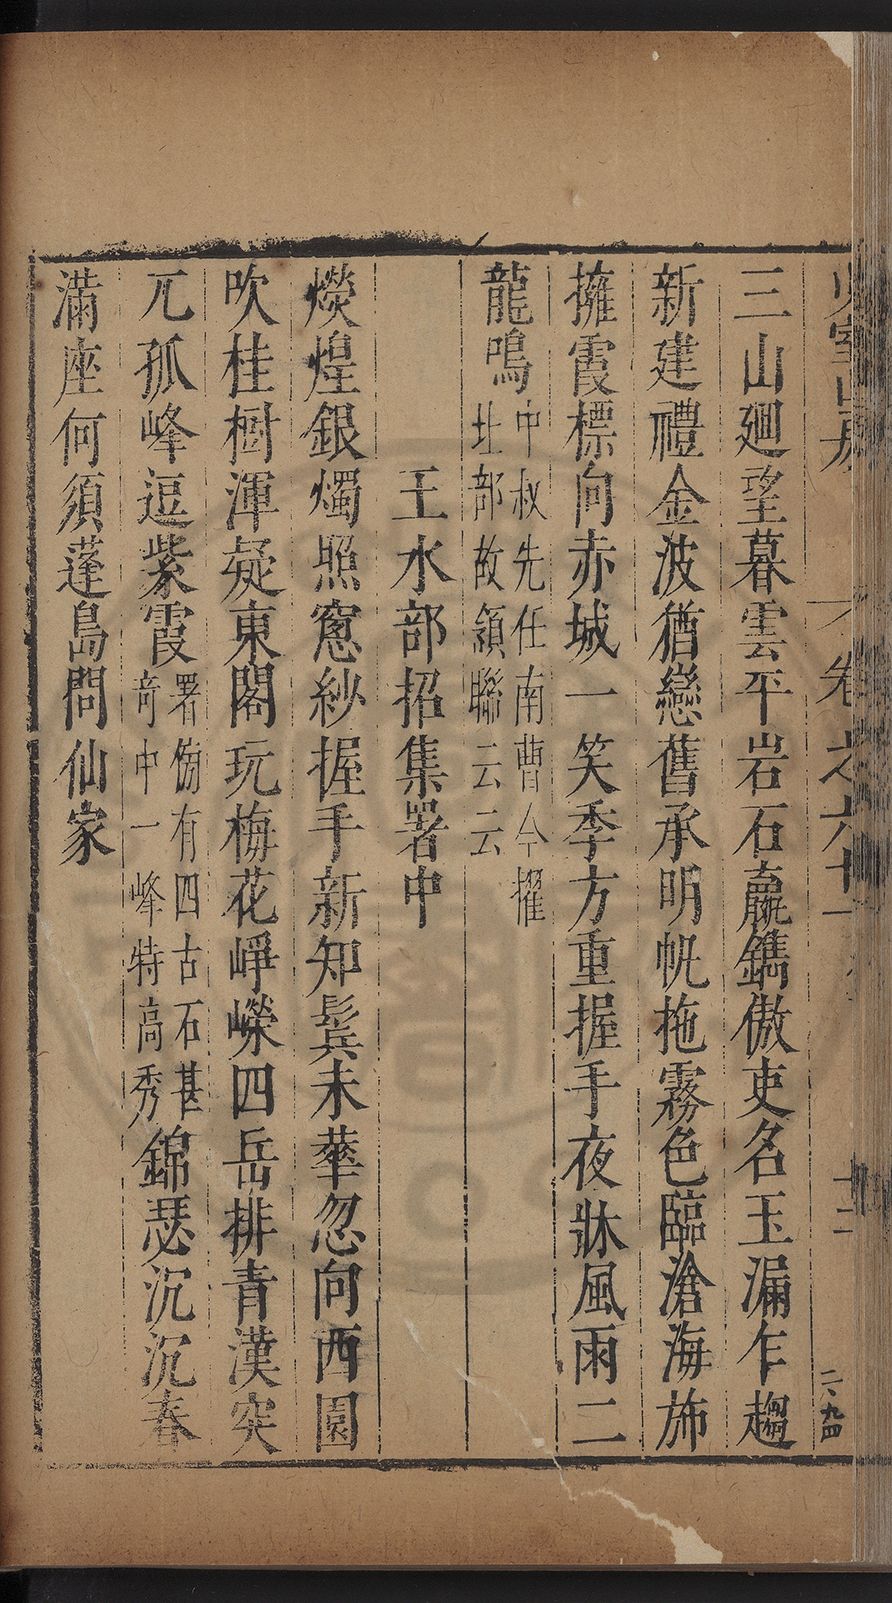 卷之六十一
十二
二、九四
三山廻望暮雲平岩石嬴鐫傲吏名玉漏乍趨
新建禮金波猶戀舊承明帆拖霧色臨滄海旆
擁霞標向赤城一笑季方重握手夜牀風雨二
龍鳴中叔先任南曹今擢北部故頷聯云云
王水部招集署中
熒煌銀燭照窻紗握手新知鬂未華忽向西園
吹桂樹渾疑東閣玩梅花崢嶸四岳排青漢突
兀孤峰逗紫霞署傍有四古石甚奇中一峰特高秀錦瑟沉沉春
滿座何須蓬島問仙家